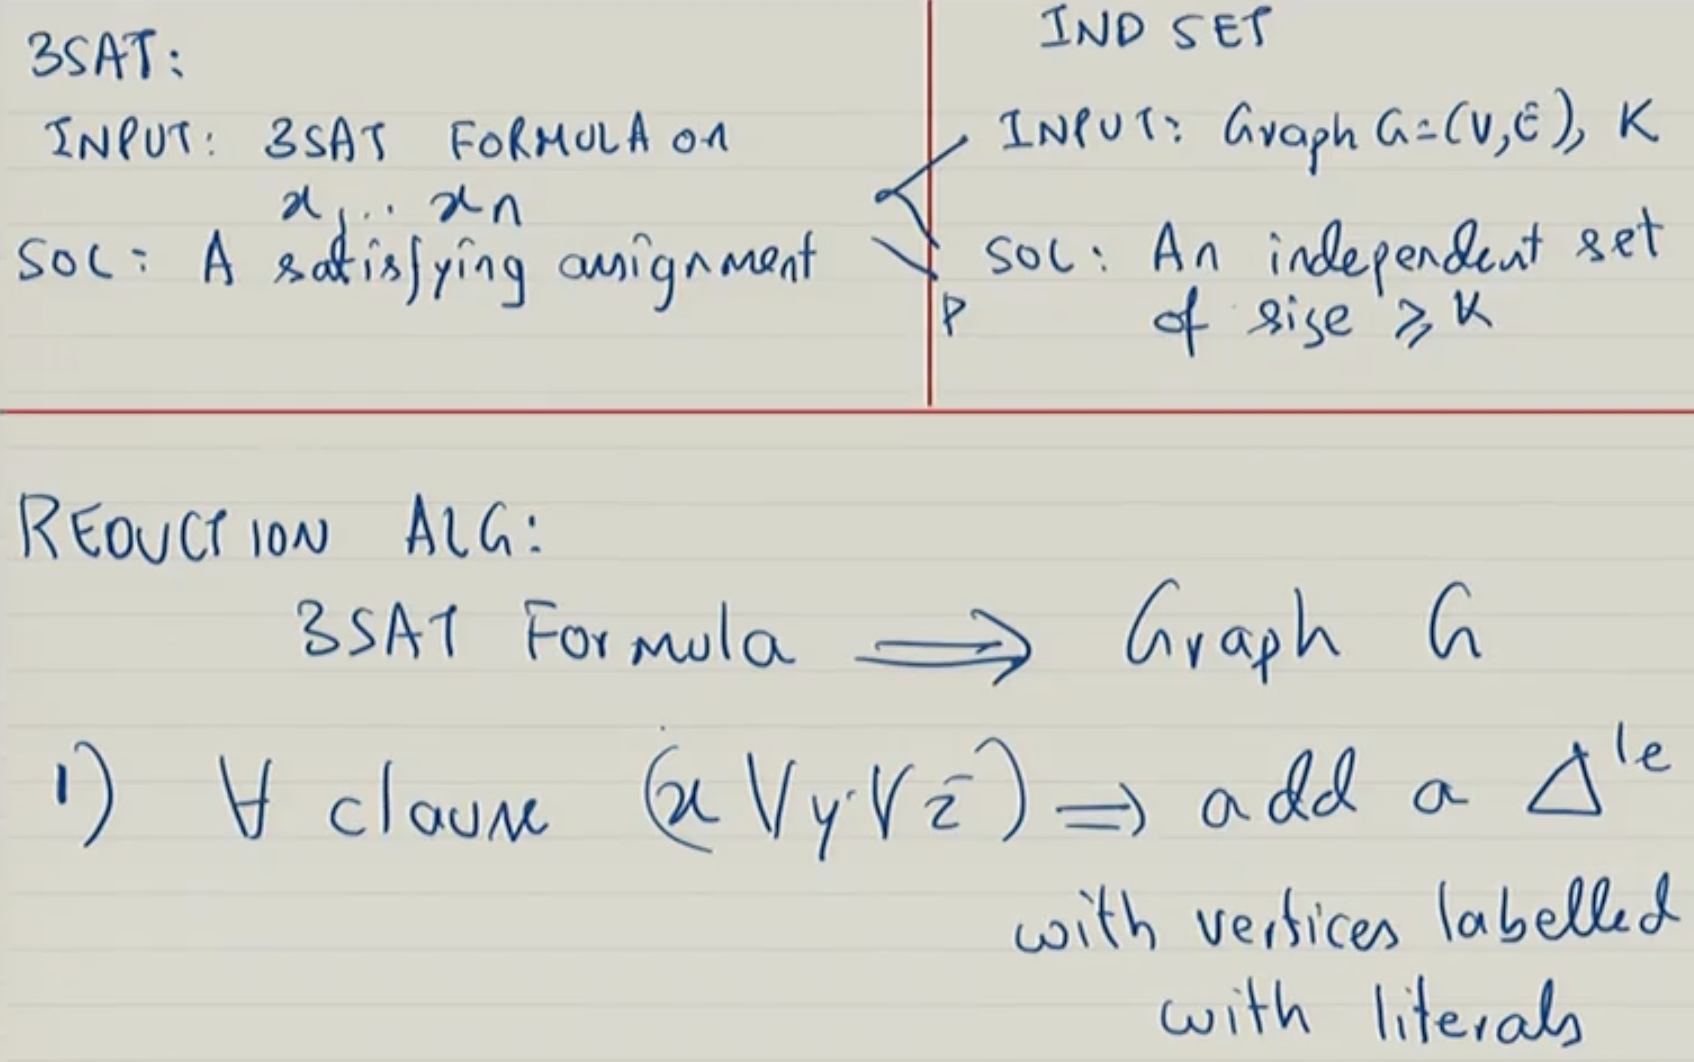 3SAT:
INPUT: 3SAT FORMULA on
x1 .. xn
SOL: A satisfying assignment
≤P
IND SET
INPUT: Graph G=(V,E), K
SOL: An independent set
of size ≥ K
REDUCTION ALG:
3SAT Formula ⟹ Graph G
1) ∀ clause (x ∨ y ∨ z̄) ⇒ add a Δle
with vertices labelled
with literals